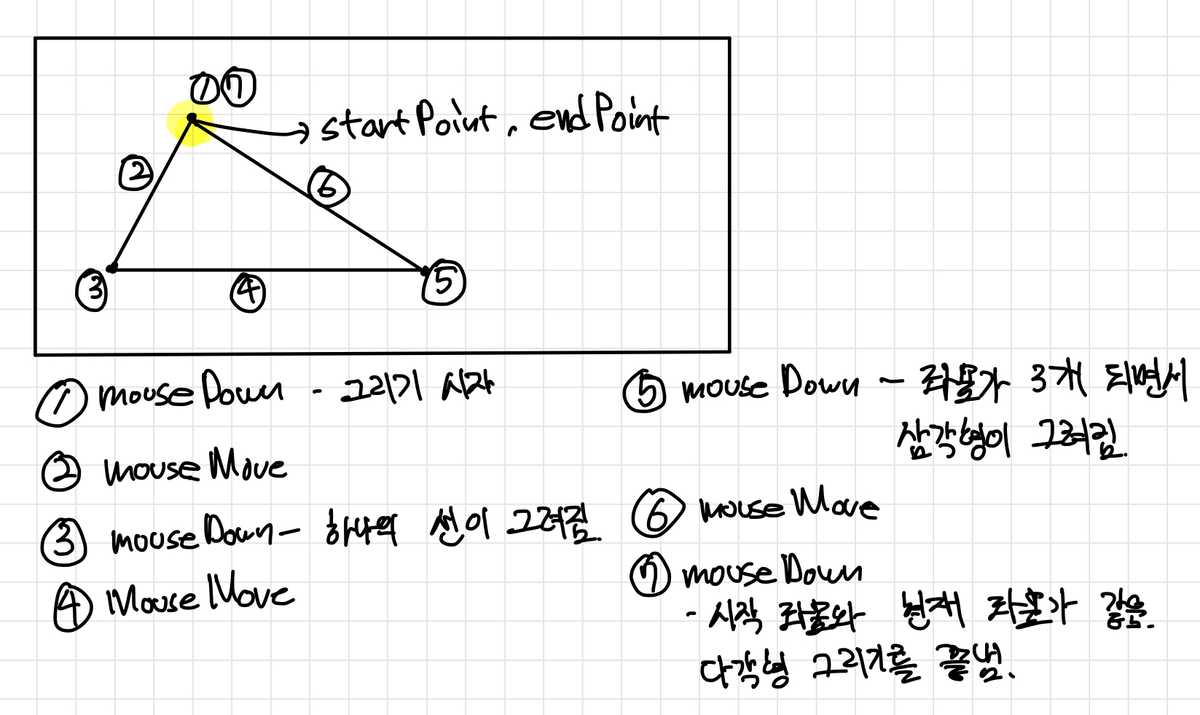 ① ⑦
startPoint, endPoint
②
⑥
③
④
⑤
① mouseDown - 그리기 시작
② mouseMove
③ mouseDown - 하나의 선이 그려짐.
④ MouseMove
⑤ mouseDown - 좌표가 3개 되면서
삼각형이 그려짐.
⑥ mouseMove
⑦ mouseDown
- 시작 좌표와 현재 좌표가 같음.
다각형 그리기를 끝냄.